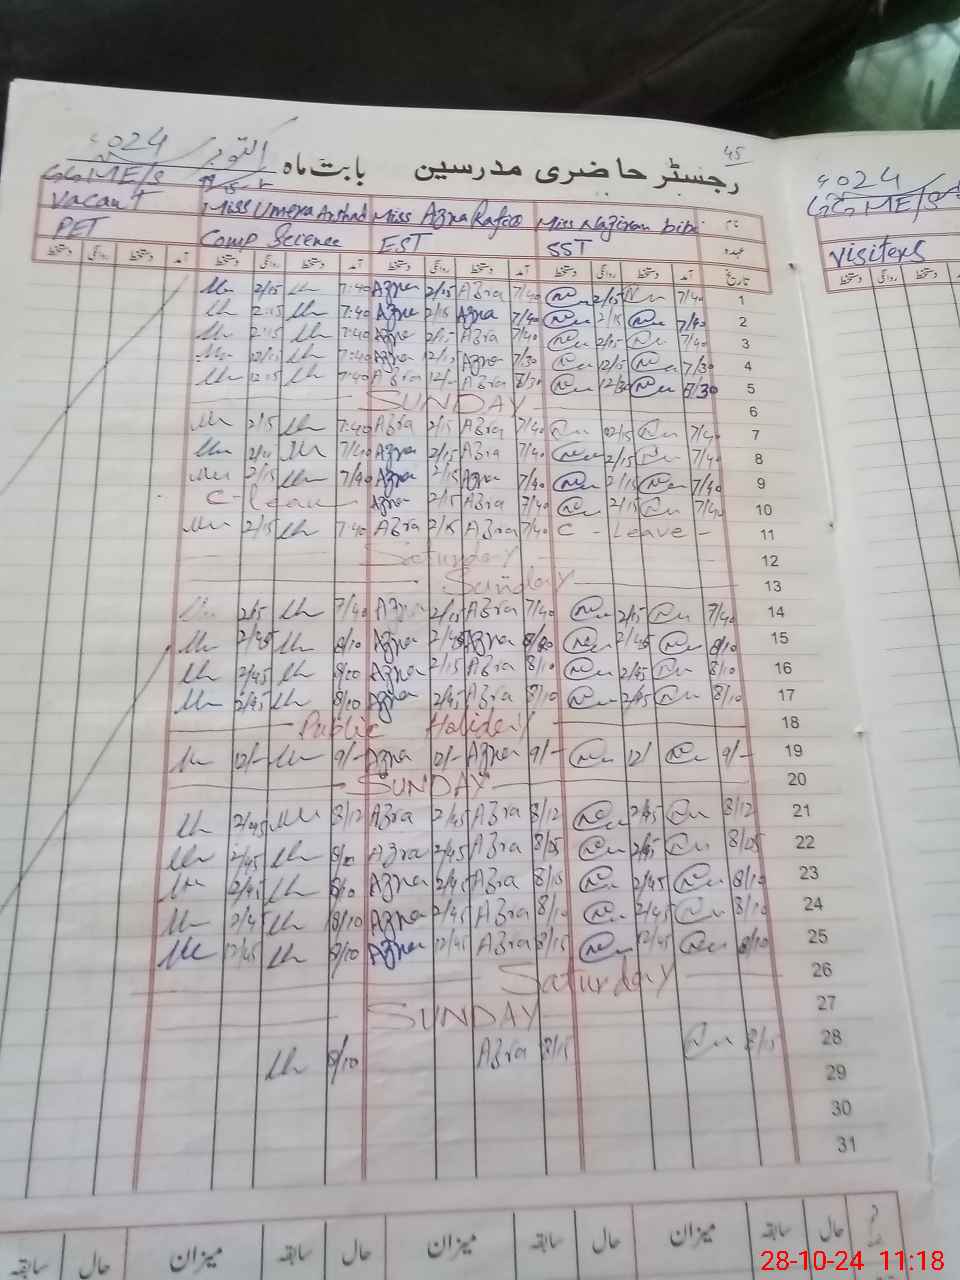 45
رجسٹر حاضری مدرسین بابت ماہ اکتوبر 2024
2024
GGME/S
GGME/S
نام Miss Naziran bibi Miss Azra Rafeeq Miss Umera Arshad Vacant
عہدہ SST EST Comp Science PET
Visiters
تاریخ آمد دستخط روانگی دستخط آمد دستخط روانگی دستخط آمد دستخط روانگی دستخط آمد دستخط روانگی دستخط
1 7/40 2/15 7/40 Azra 2/15 Azra 7:40 2/15
2 7/40 2/15 7/40 Azra 2/15 Azra 7:40 2:15
3 7/40 2/15 7/40 Azra 2/15 Azra 7:40 2:15
4 7/30 12/15 7/30 Azra 12/15 Azra 7:40 12/15
5 12/30 Azra 12/- Azra 7:40 12:15
6 SUNDAY
7 7/40 7/40 Azra 2/15 Azra 7:40 2/15
8 7/40 2/15 7/40 Azra 2/15 Azra 7/40
9 7/40 2/15 7/40 Azra 2/15 Azra 7/40 2/15
10 7/40 2/15 7/40 Azra 2/15 Azra C-leave
11 C - Leave - 7/40 Azra 2/15 Azra 7:40 2/15
12 Saturday
13 Sunday
14 7/40 2/15 7/40 Azra 2/15 Azra 7/40 2/15
15 8/10 2/45 Azra 2/45 Azra 8/10 2/45
16 8/10 2/45 8/10 Azra 2/15 Azra 8/10 2/45
17 8/10 2/45 8/10 Azra 2/45 Azra 8/10 2/45
18 Public Holiday
19 9/- 12/ 9/- Azra 12/- Azra 9/- 12/-
20 SUNDAY
21 8/12 2/45 8/12 Azra 2/45 Azra 8/12 2/45
22 8/05 2/45 8/05 Azra 2/45 Azra 8/10 2/45
23 8/10 2/45 8/15 Azra 2/45 Azra 8/10 2/45
24 8/10 2/45 8/10 Azra 2/45 Azra 8/10 2/45
25 8/10 12/45 8/15 Azra 12/45 Azra 8/10 12/45
26 Saturday
27 SUNDAY
28 8/15 8/15 Azra 8/10
29
30
31
سابقہ حال میزان سابقہ حال میزان سابقہ حال میزان سابقہ حال
28-10-24 11:18